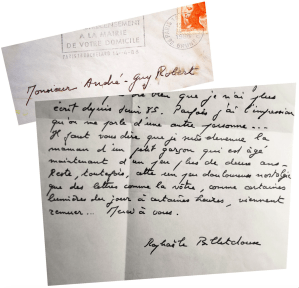 A LA MAIRIE
DE VOTRE DOMICILE
Monsieur André-Guy Robert
bien que je n'ai plus
écrit depuis juin 85. Parfois j'ai l'impression
qu'on me parle d'une autre personne...
Il faut vous dire que je suis devenue la
maman d'un petit garçon qui est âgé
maintenant d'un peu plus de deux ans.
Reste, toutefois, cette un peu douloureuse nostalgie
que des lettres comme la vôtre, comme certaines
lumières du jour à certaines heures, viennent
remuer... Merci à vous.
Raphaële Billetdoux